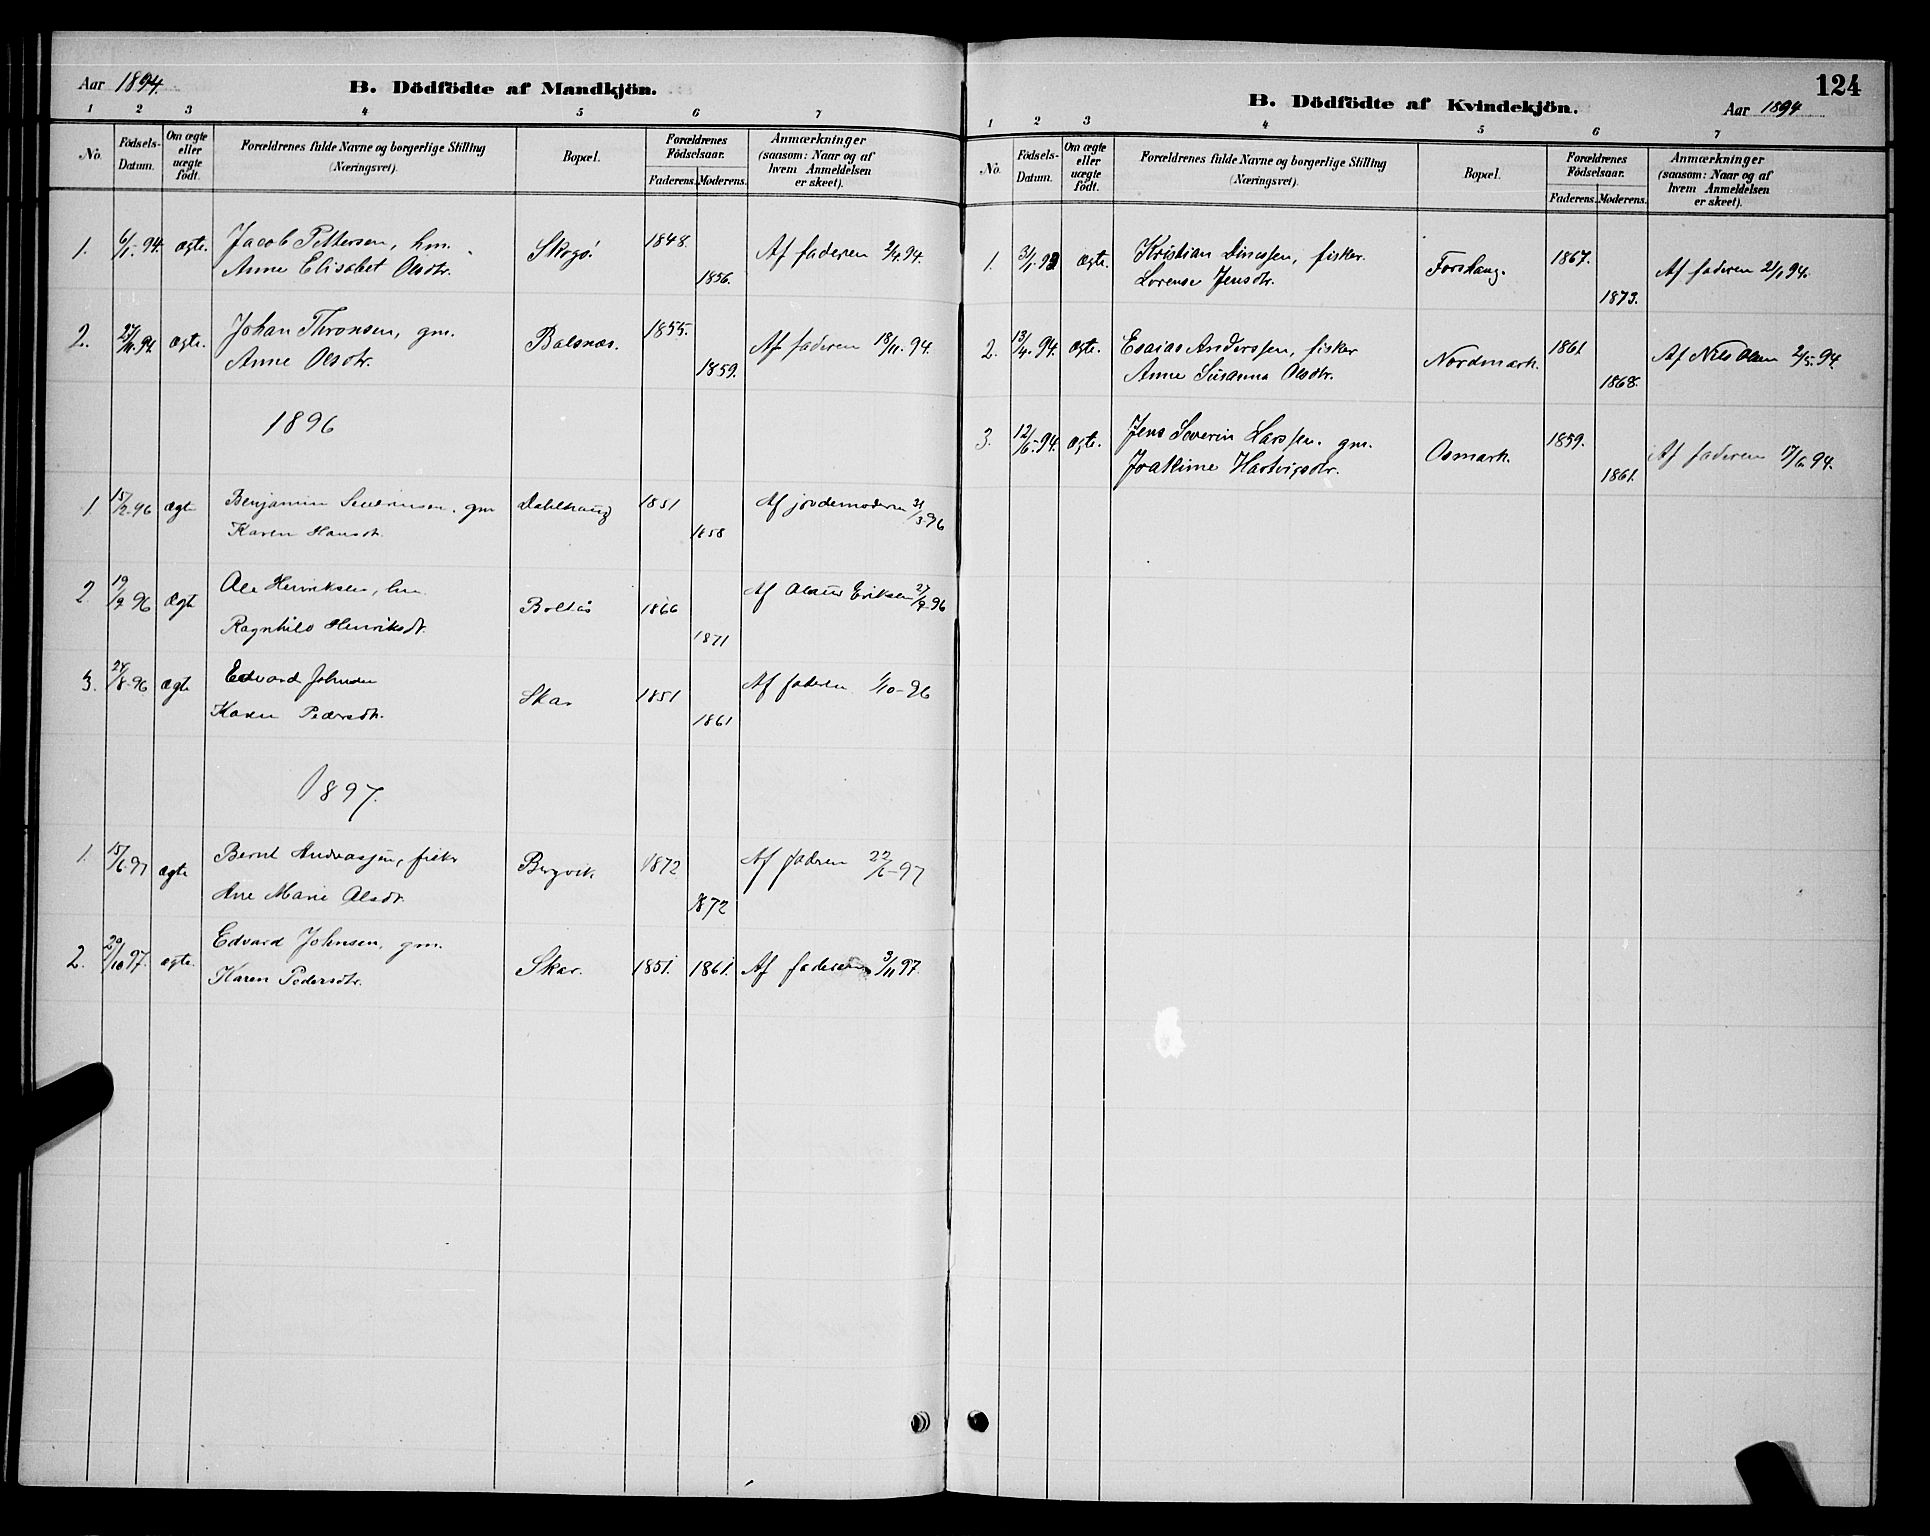 Aar 1894.
B. Dödfödte af Mandkjön.
1 2 3 4 5 6 7
No.
Födsels-Datum.
Om ægte eller uægte födt.
Forældrenes fulde Navne og borgerlige Stilling (Næringsvei).
Bopæl.
Forældrenes Födselsaar.
Faderens. Moderens.
Anmærkninger (saasom: Naar og af hvem Anmeldelsen er skeet).
1. 6/1-94. ægte. Jacob Pettersen, hm. Skogö. 1848. Af faderen 94.
Anne Elisabet Olsdtr. 1856.
2. 94. ægte. Johan Thronsen, gm. Balsnæs. 1855. Af faderen 18/11-94.
Anne Olsdtr. 1859.
1896
1 15/2-96 ægte Benjamin Severinsen. gm Dahlhaug 1851 Af jordemoderen 31/3-96
Karen Hansdtr. 1858
2. 19/9-96 ægte Ole Henriksen, hm. Boltås 1866 Af Olaus Eriksen 27/9-96
Ragnhild Henriksdtr. 1871
3. 24/8-96 ægte Edvard Johnsen Skar 1851 Af faderen 1/10-96
Karen Pedersdtr. 1861
1897.
1. 15/6-97 ægte Bernt Andreassen, fisker Bergvik 1872 Af faderen 22/6-97
Ane Marie Olsdtr. 1872
2. 20/10 97. ægte. Edvard Johnsen, gm. Skar. 1851. 1861. Af faderen 3/11 97.
Karen Pedersdtr.
124
B. Dödfödte af Kvindekjön.
Aar 1894
1 2 3 4 5 6 7
No.
Födsels-Datum.
Om ægte eller uægte födt.
Forældrenes fulde Navne og borgerlige Stilling (Næringsvei).
Bopæl.
Forældrenes Födselsaar.
Faderens. Moderens.
Anmærkninger (saasom: Naar og af hvem Anmeldelsen er skeet).
1. ægte. Kristian Dinessen, fisker. Forshaug. 1867. Af faderen 2/1 94.
Lorense Jensdtr. 1873.
2. 13/4-94. ægte. Esaias Anderssen, fisker Nordmark. 1861 Af Nils Olsen 2/5-94.
Anne Susanna Olsdtr. 1868.
3. 12/6-94. ægte. Jens Severin Larssen. gm. Osmark. 1859. Af faderen 17/6 94.
Joakime Hartvigsdtr. 1861.